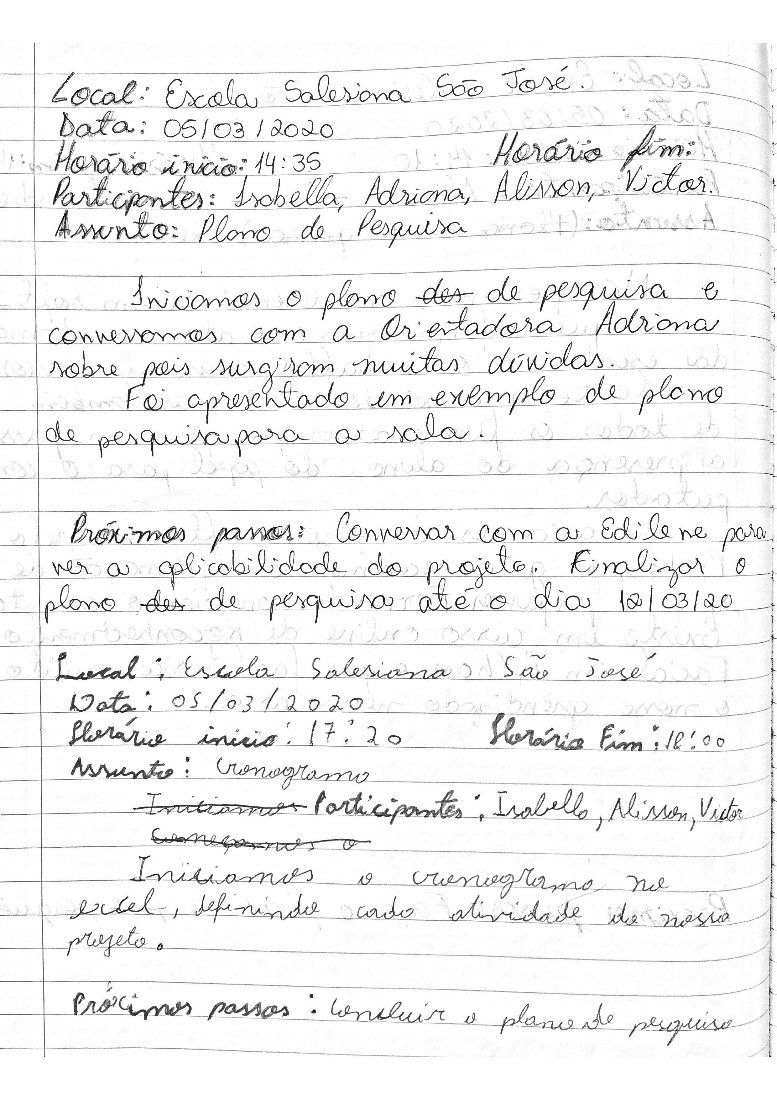 Local: Escola Salesiana São José.
Data: 05/03/2020
Horário início: 14:35 Horário fim:
Participantes: Isabella, Adriana, Alisson, Victor.
Assunto: Plano de Pesquisa
Iniciamos o plano des de pesquisa e
conversamos com a Orientadora Adriana
sobre pois surgiram muitas dúvidas.
Foi apresentado em exemplo de plano
de pesquisa para a sala.
Próximos passos: Conversar com a Edilene para
ver a aplicabilidade do projeto. Finalizar o
plano des de pesquisa até o dia 12/03/20
Local: Escola Salesiana São José
Data: 05/03/2020
Horário inicio: 17:20 Horário Fim: 18:00
Assunto: Cronograma
Iniciamos Participantes: Isabella, Alisson, Victor
Começamos o
Iniciamos o cronograma no
excel, definindo cada atividade do nosso
projeto.
Próximos passos: Concluir o plano de pesquisa